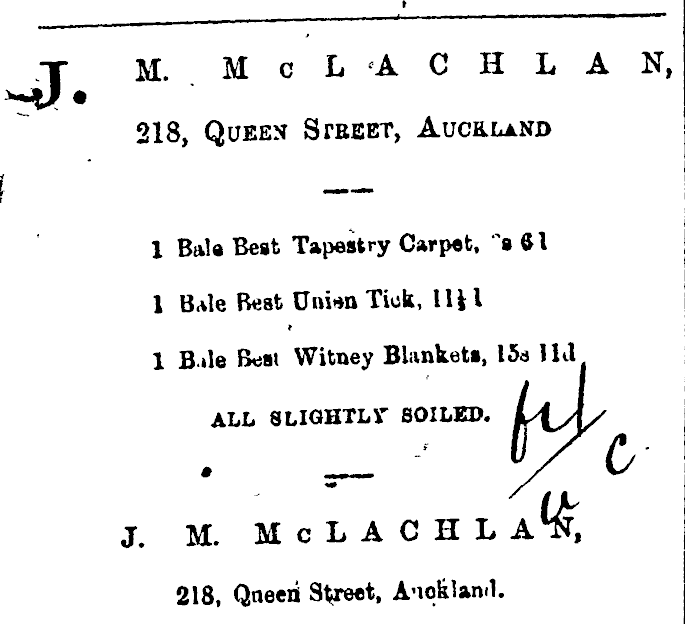 J. M. McLACHLAN,
218, QUEEN STREET, AUCKLAND
1 Bale Best Tapestry Carpet, s 6d
1 Bale Best Union Tick, 11½d
1 Bale Best Witney Blankets, 15s 11d
ALL SLIGHTLY SOILED.
J. M. McLACHLAN,
218, Queen Street, Auckland.